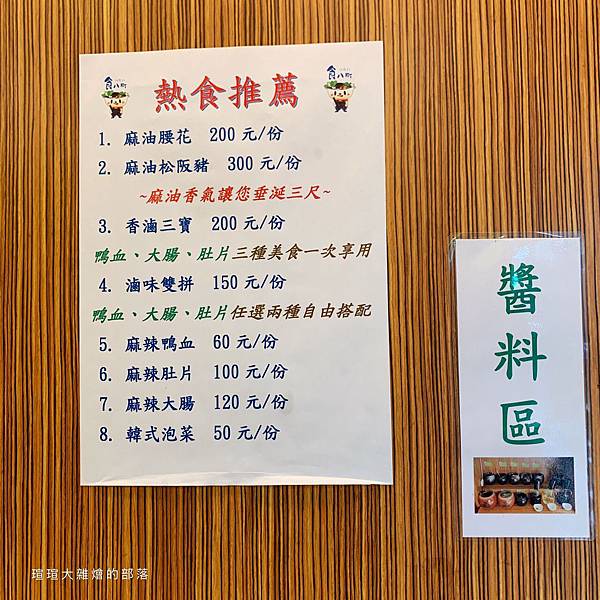 食八町
食八町
熱食推薦
1. 麻油腰花 200 元/份
2. 麻油松阪豬 300 元/份
~麻油香氣讓您垂涎三尺~
3. 香滷三寶 200 元/份
鴨血、大腸、肚片三種美食一次享用
4. 滷味雙拼 150 元/份
鴨血、大腸、肚片任選兩種自由搭配
5. 麻辣鴨血 60 元/份
6. 麻辣肚片 100 元/份
7. 麻辣大腸 120 元/份
8. 韓式泡菜 50 元/份
醬料區
瑄瑄大雜燴的部落